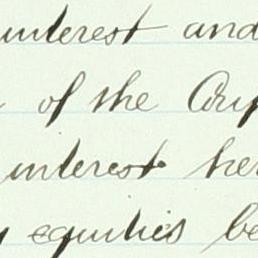 interest and
of the
interest
equities be